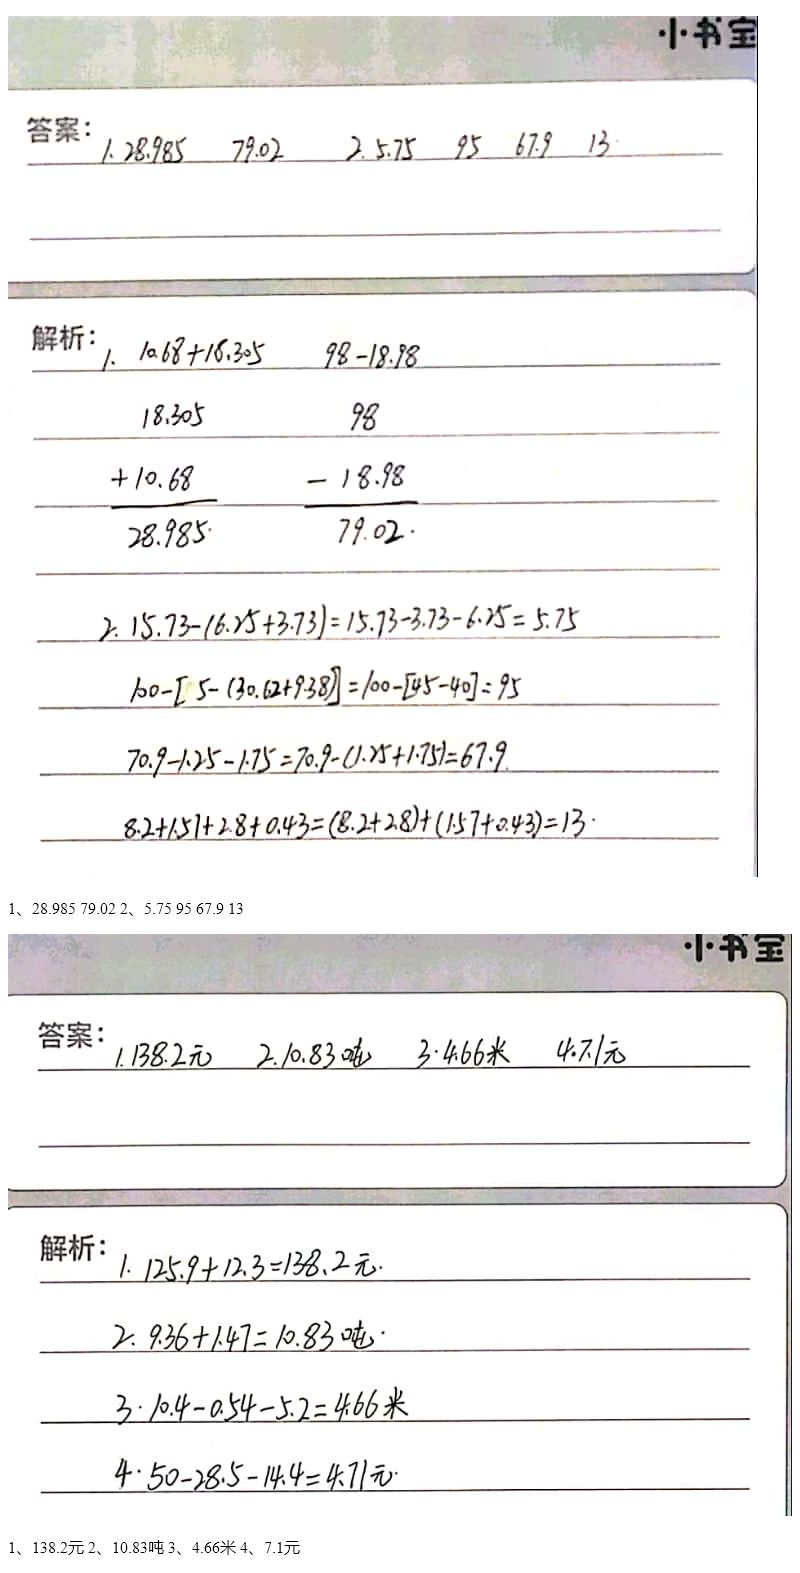 小书宝
答案: 1. 28.985 79.02 2. 5.75 95 67.9 13.
解析: 1. 10.68+18.305 98-18.98
18.305 98
+10.68 - 18.98
28.985. 79.02.
2. 15.73-(6.25+3.73)=15.73-3.73-6.25=5.75
100-[ 5-(30.62+9.38)]=100-[45-40]=95
70.9-1.25-1.75=70.9-(1.25+1.75)=67.9.
8.2+1.57+2.8+0.43=(8.2+2.8)+(1.57+0.43)=13.
1、28.985 79.02 2、5.75 95 67.9 13
小书宝
答案: 1.138.2元 2.10.83吨 3.4.66米 4.7.1元
解析: 1. 125.9+12.3=138.2元.
2. 9.36+1.47=10.83吨.
3. 10.4-0.54-5.2=4.66米
4. 50-28.5-14.4=4.71元.
1、138.2元 2、10.83吨 3、4.66米 4、7.1元